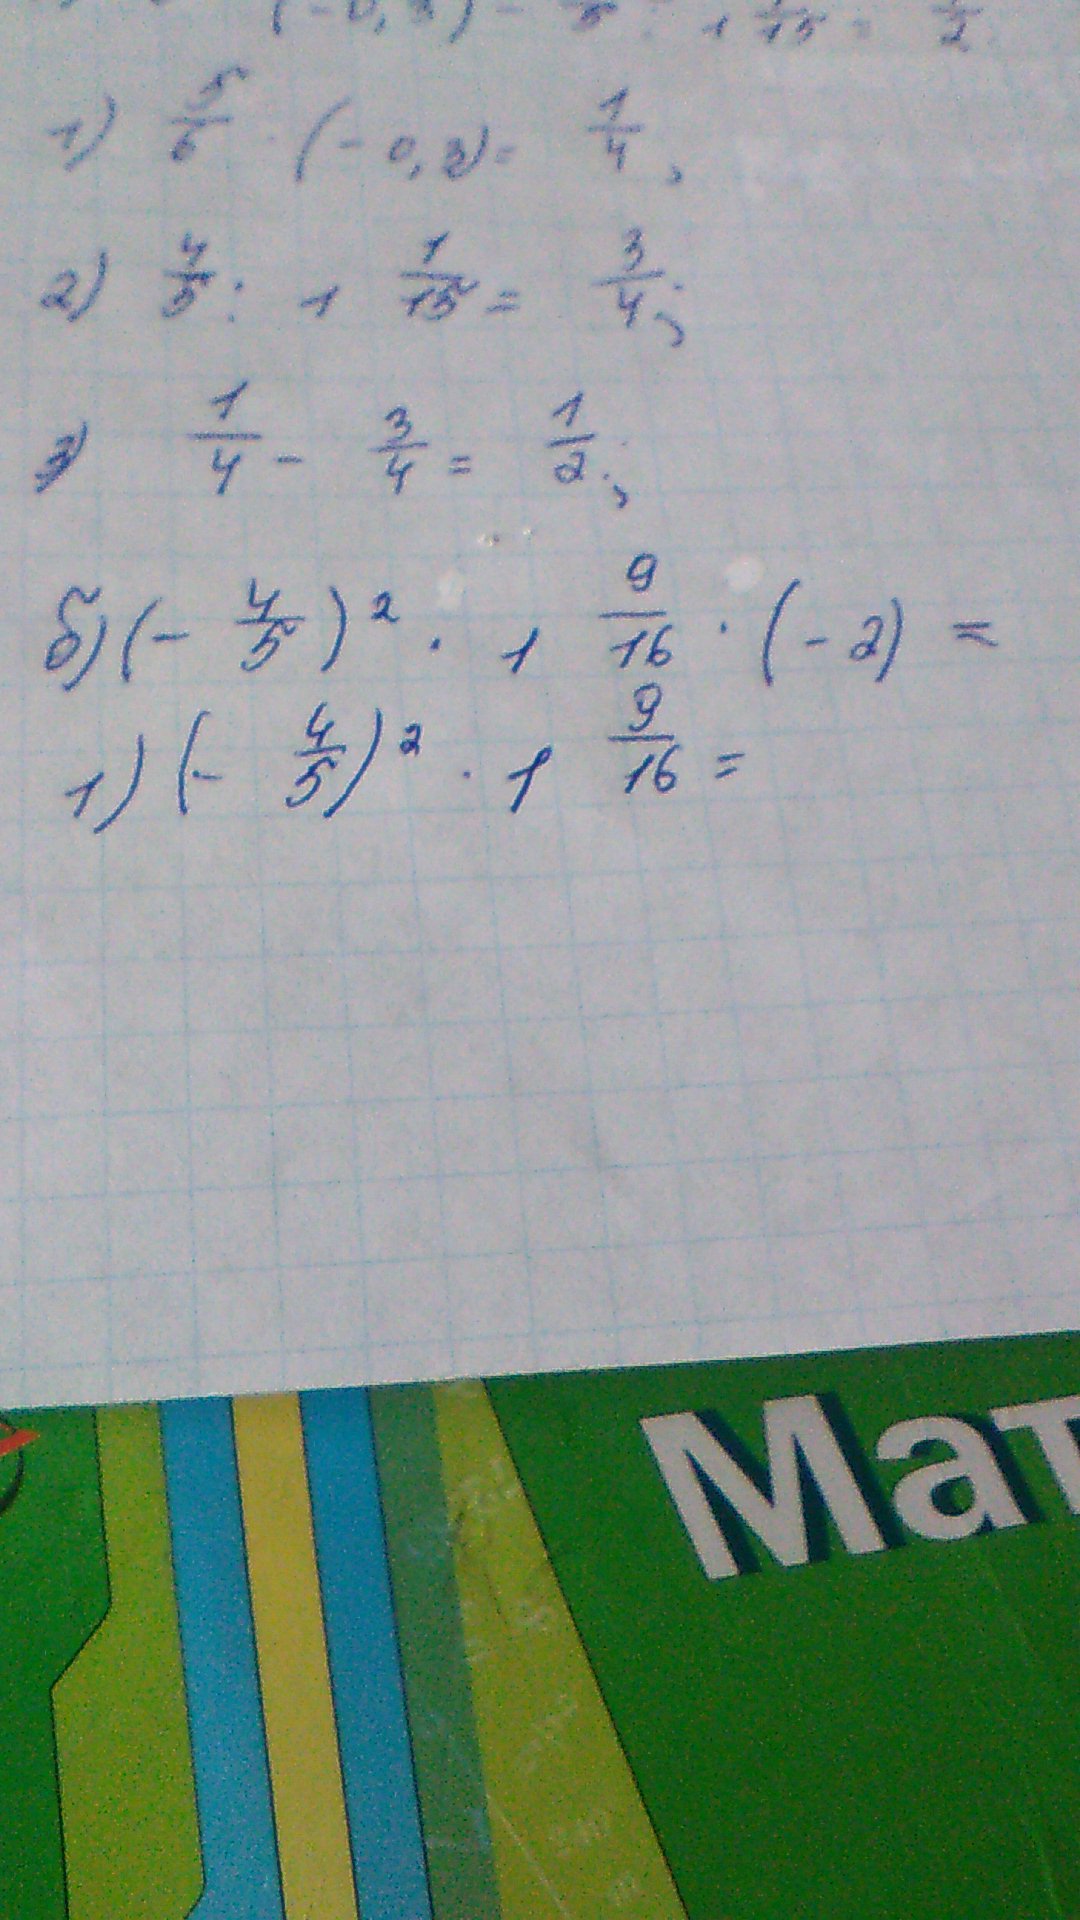 (-0,3) - 4/5 : 1 1/15 = 1/2
1) 5/6 · (-0,3) = 1/4;
2) 4/5 : 1 1/15 = 3/4;
3) 1/4 - 3/4 = 1/2;
б) (- 4/5)² · 1 9/16 · (-2) =
1) (- 4/5)² · 1 9/16 =
Мат